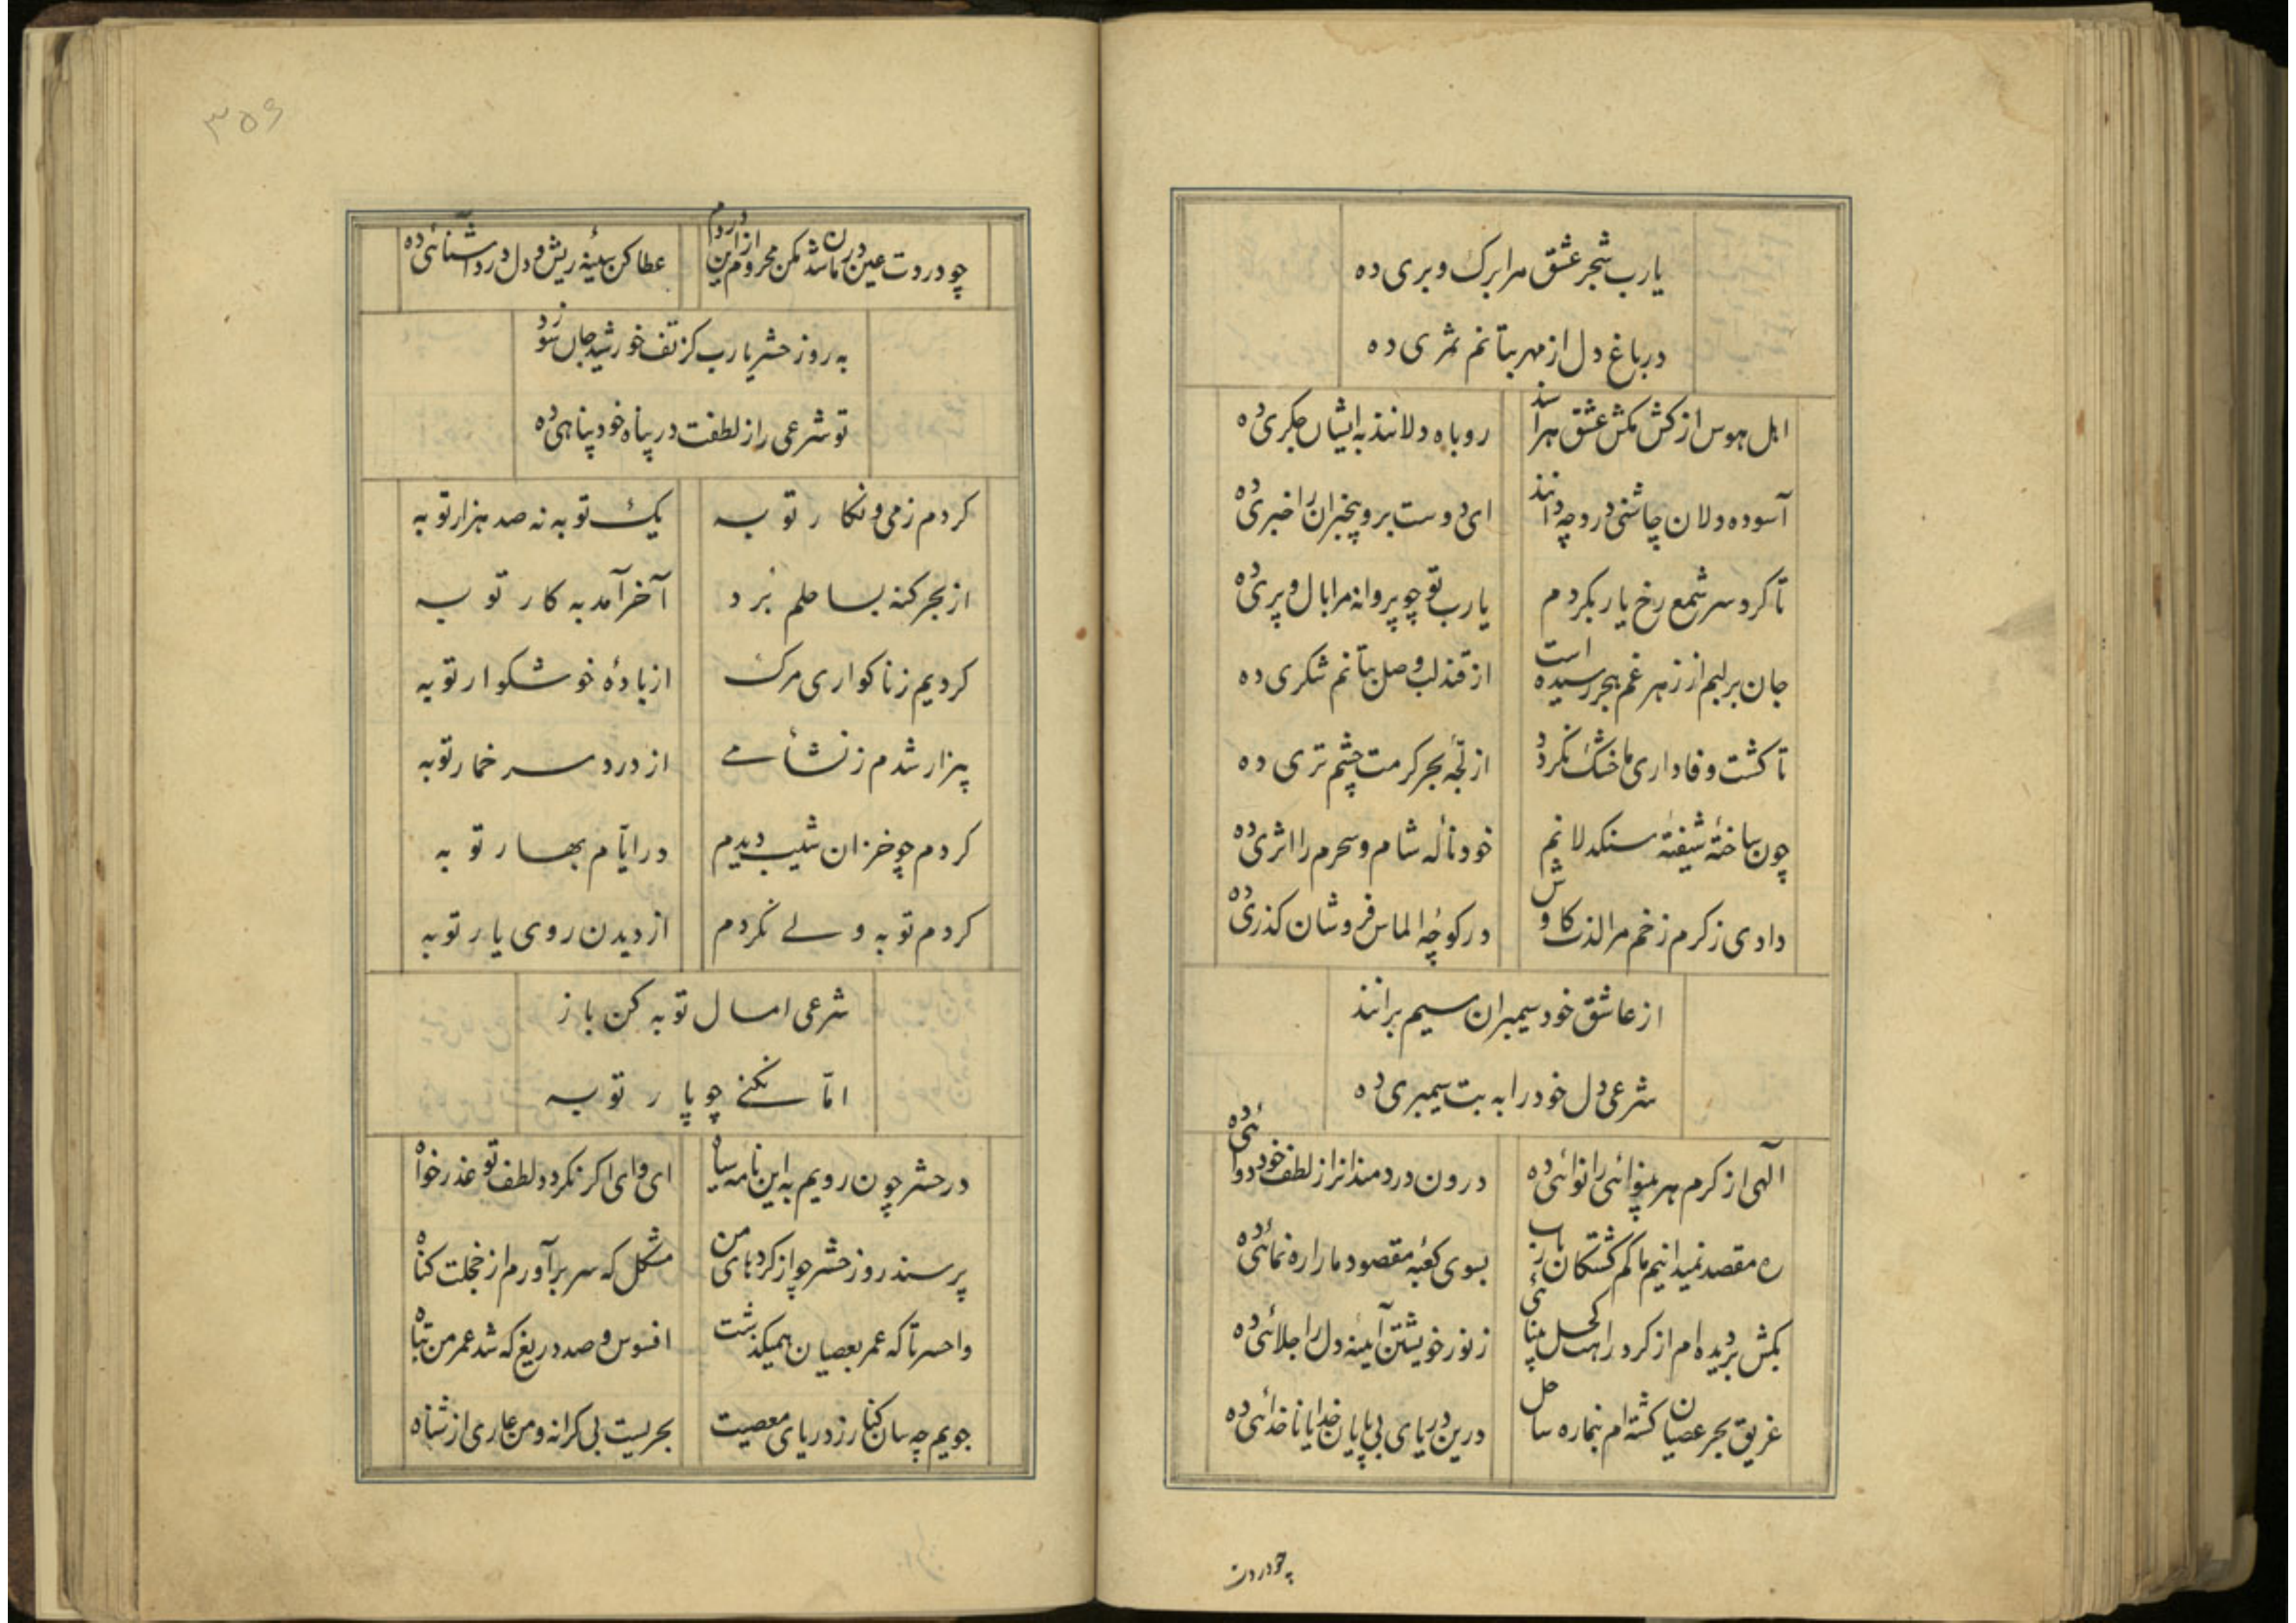 یارب شجر عشق مرا برک و بری ده
در باغ دل از مهر بتانم ثمری ده
اهل هوس از کش مکش عشق هراسند
روباه دلانند به ایشان جکری ده
آسوده دلان چاشنی درد چه دانند
ای دوست برو بیخبران را خبری ده
تا کرد سر شمع رخ یار بکردم
یارب تو چو پروانه مرا بال و پری ده
جان بر لبم از زهر غم هجر رسیده است
از قند لب وصل بتانم شکری ده
تا کشت وفاداری ما خشک نکردد
از لجّه بحر کرمت چشم تری ده
چون ساختهٔ شیفتهٔ سنکدلانم
خود نالهٔ شام و سحرم را اثری ده
دادی ز کرم زخم مرا لذت کاوش
در کوچهٔ الماس فروشان کذری ده
از عاشق خود سیمبران سیم برانند
شرعی دل خود را به بت سیمبری ده
الهی از کرم هر بینوائی را نوائی ده
درون دردمندانرا ز لطف خود دوائی ده
ره مقصد نمیدانیم ما کم کشتکان یارب
بسوی کعبهٔ مقصود ما را ره نمائی ده
بکش بر دیده ام از کرد راهت کحل بینائی
ز نور خویشتن آیینه دل را جلائی ده
غریق بحر عصیان کشته ام بنما ره ساحل
درین دریای بی پایان خدایا ناخدائی ده
چو دردت
چو دردت عین درمان شد مکن محرومم از این دردم
عطا کن سینهٔ ریش و دل درد آشنائی ده
به روز حشر یارب کز تف خورشید جان سوزد
تو شرعی را ز لطفت در پناه خود پناهی ده
کردم ز می و نکار توبه
یک توبه نه صد هزار توبه
از بحر کنه بساحلم برد
آخر آمد به کار توبه
کردیم ز ناکواری مرک
از بادهٔ خوشکوار توبه
بیزار شدم ز نشأ می
از درد سر خمار توبه
کردم چو خزان شیب دیدم
در ایّام بهار توبه
کردم توبه ولی نکردم
از دیدن روی یار توبه
شرعی امسال توبه کن باز
امّا نکنی چو پار توبه
در حشر چون رویم به این نامه سیاه
ای وای اکر نکردد لطف تو عذر خواه
پرسند روز حشر چو از کردهای من
مشکل که سر برآورم از خجلت کناه
واحسرتا که عمر بعصیان همیکذشت
افسوس و صد دریغ که شد عمر من تباه
جویم چه سان کنار ز دریای معصیت
بحریست بی کرانه و من عاری از شناه
۳۵۶